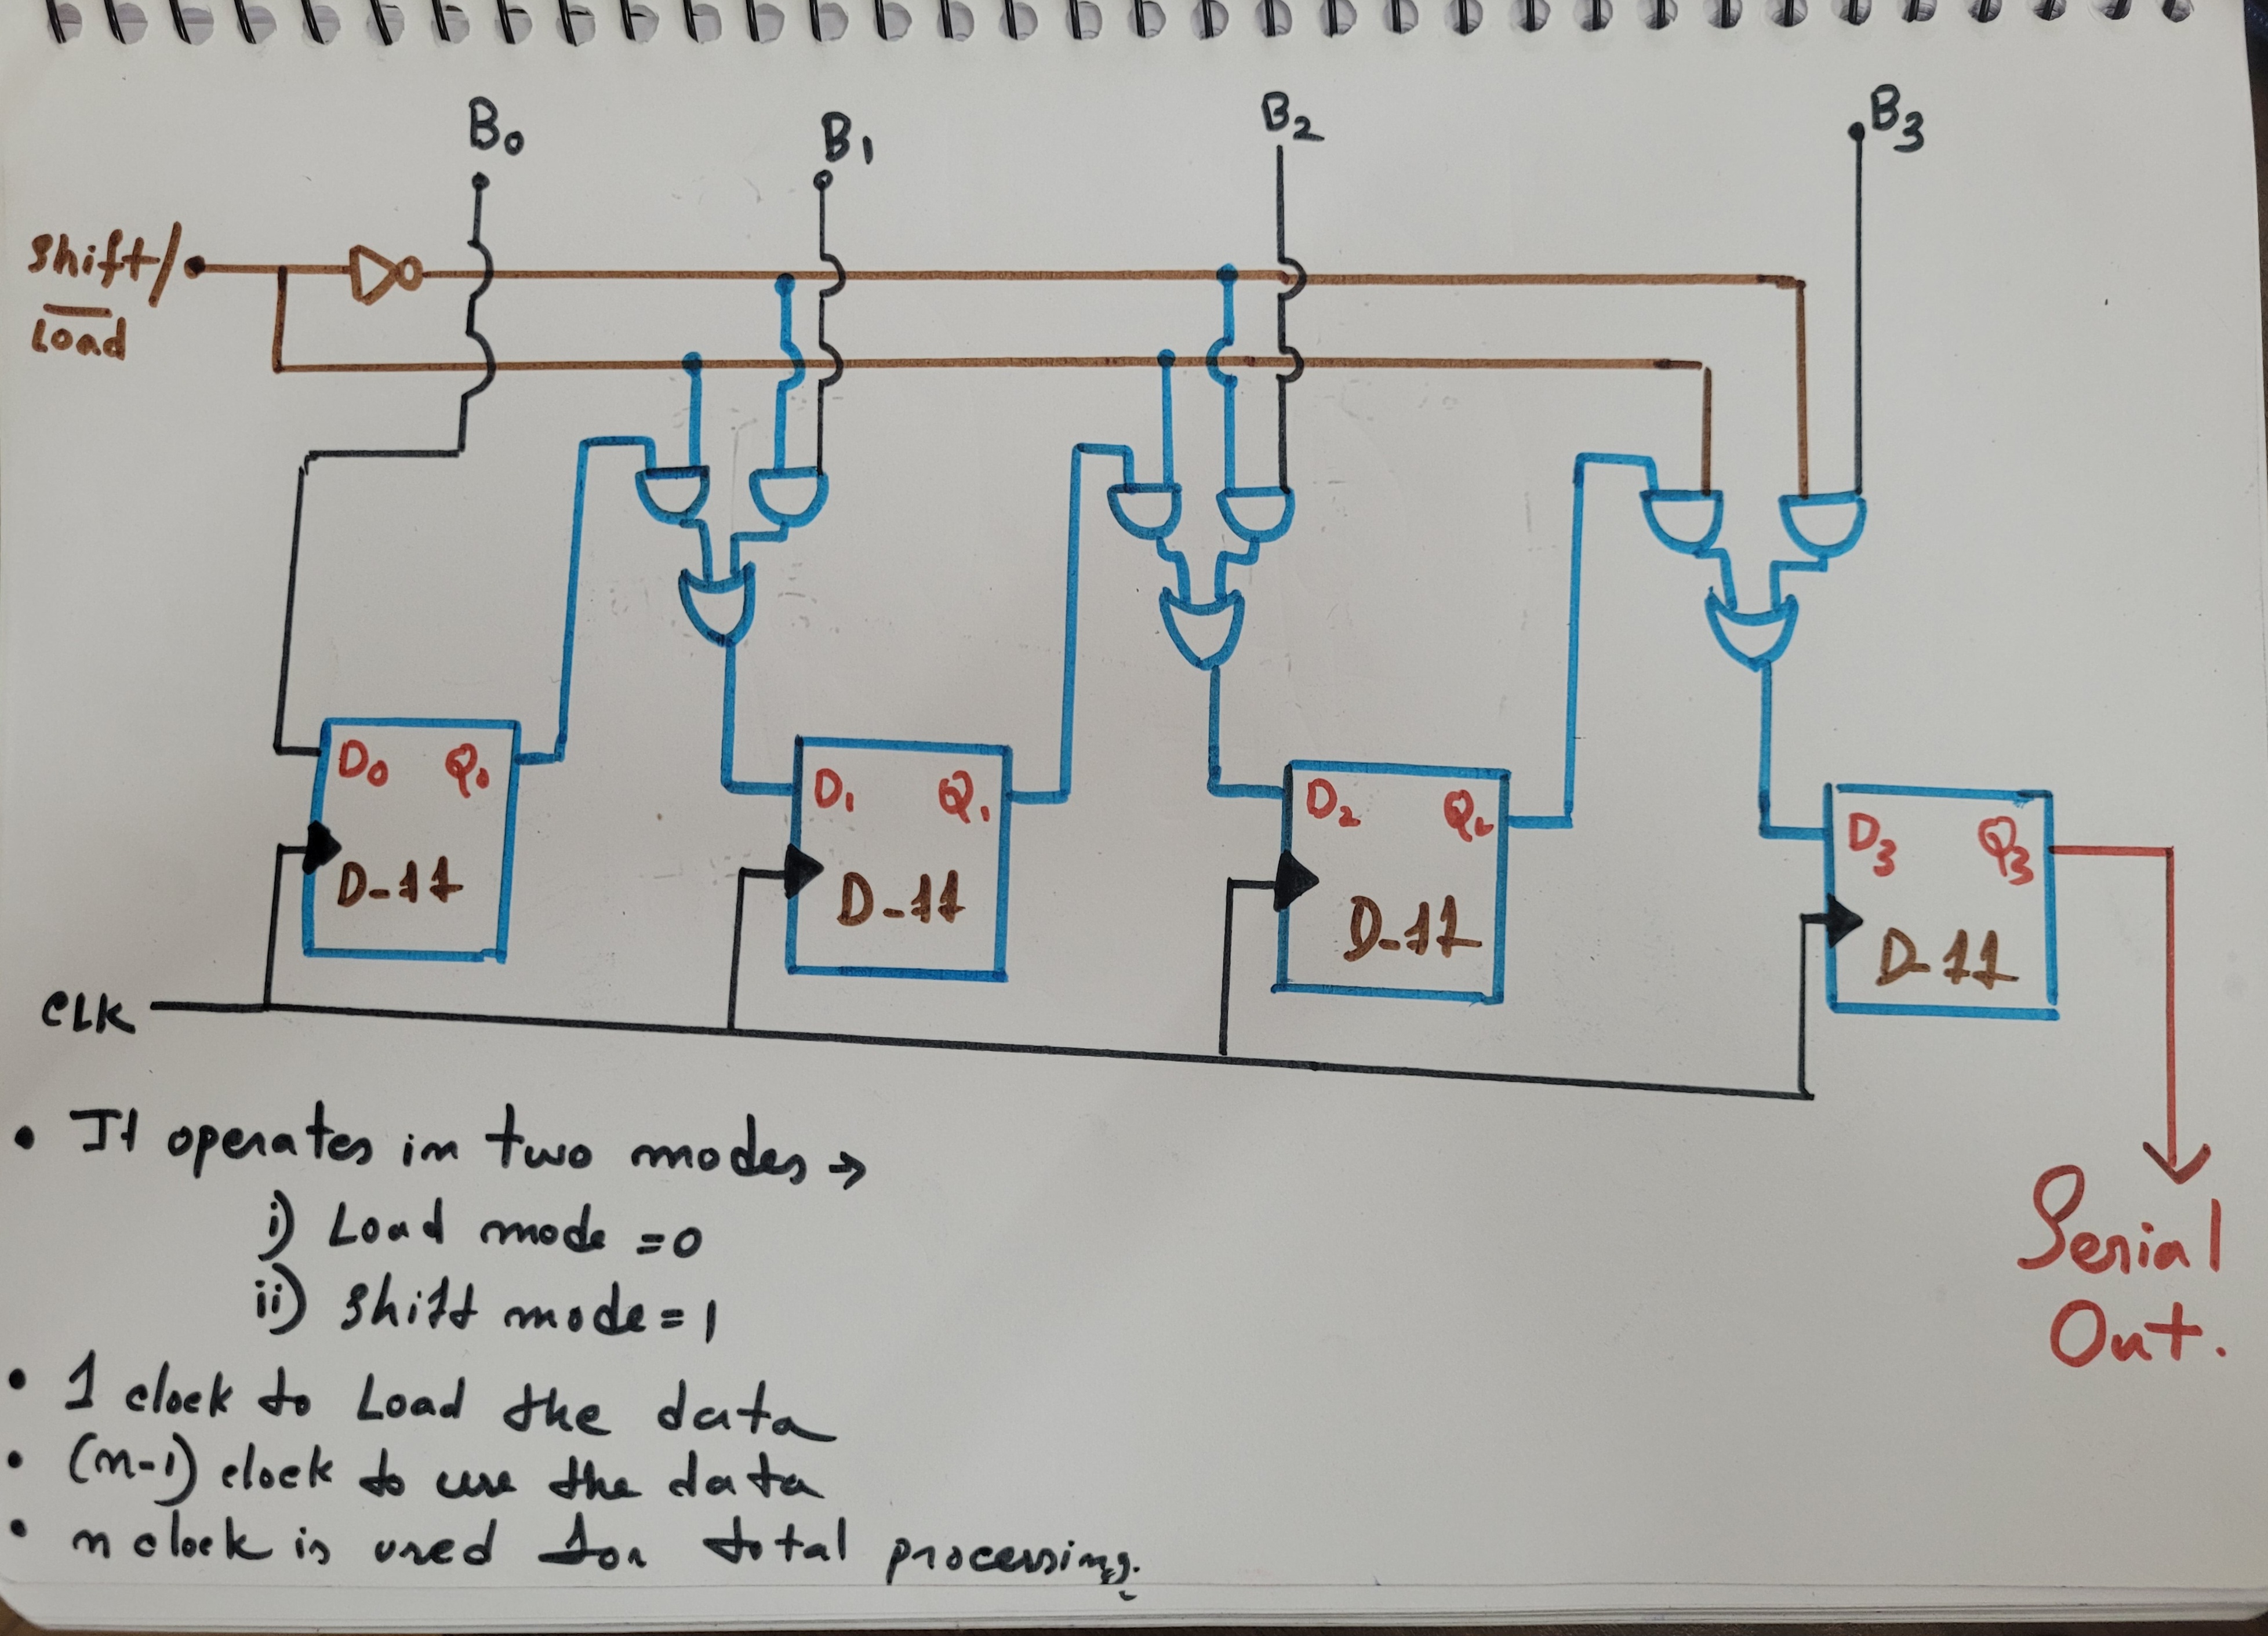 B0 B1 B2 B3
Shift/
Load
D0 Q0
D1 Q1
D2 Q2
D3 Q3
D-ff
D-ff
D-ff
D-ff
CLK
• It operates in two modes →
i) Load mode = 0
ii) Shift mode = 1
• 1 clock to Load the data
• (n-1) clock to use the data
• n clock is used for total processing.
Serial
Out.